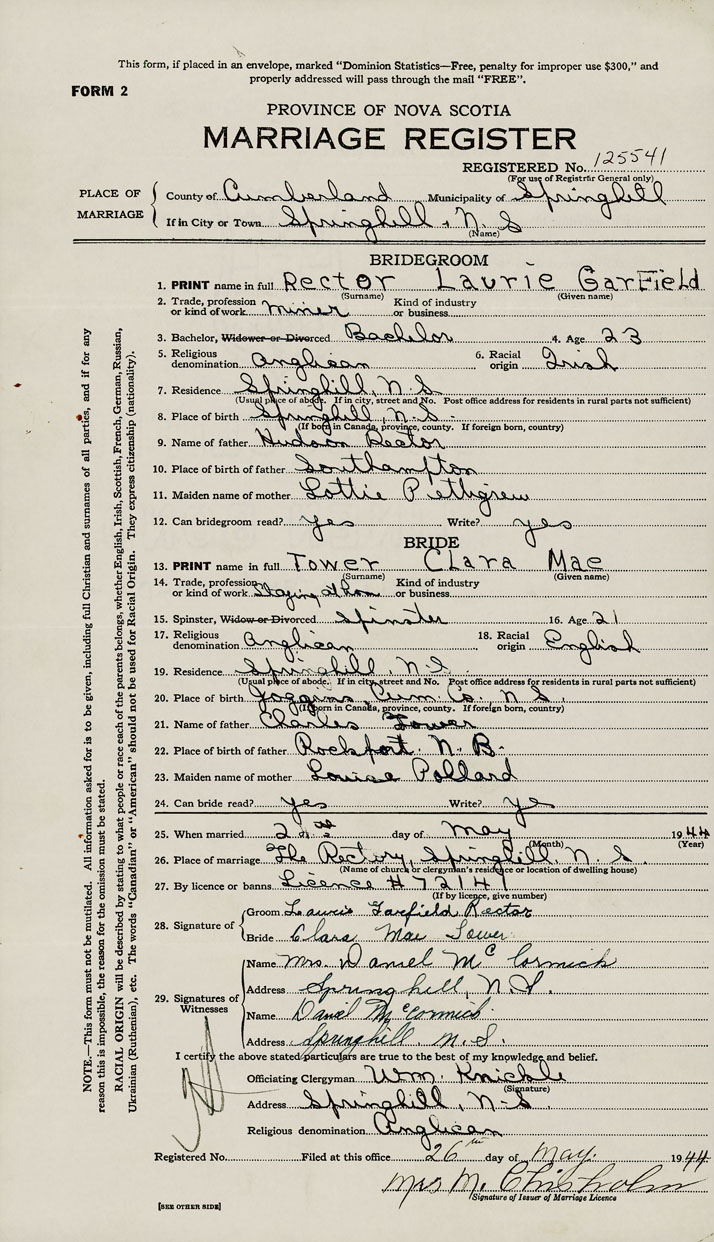 This form, if placed in an envelope, marked "Dominion Statistics—Free, penalty for improper use $300," and
properly addressed will pass through the mail "FREE".
FORM 2
PROVINCE OF NOVA SCOTIA
MARRIAGE REGISTER
REGISTERED No. 125541
(For use of Registrar General only)
PLACE OF MARRIAGE
County of Cumberland Municipality of Springhill
If in City or Town Springhill, N.S
(Name)
BRIDEGROOM
1. PRINT name in full Rector Laurie GarField
(Surname) (Given name)
2. Trade, profession or kind of work Miner Kind of industry or business
3. Bachelor, Widower or Divorced Bachelor 4. Age 23
5. Religious denomination Anglican 6. Racial origin Irish
7. Residence Springhill, N.S.
(Usual place of abode. If in city, street and No. Post office address for residents in rural parts not sufficient)
8. Place of birth Springhill, N.S.
(If born in Canada, province, county. If foreign born, country)
9. Name of father Hudson Rector
10. Place of birth of father Southampton
11. Maiden name of mother Lottie Pettigrew
12. Can bridegroom read? yes Write? yes
BRIDE
13. PRINT name in full Tower Clara Mae
(Surname) (Given name)
14. Trade, profession or kind of work Staying at home Kind of industry or business
15. Spinster, Widow or Divorced Spinster 16. Age 21
17. Religious denomination Anglican 18. Racial origin English
19. Residence Springhill, N.S.
(Usual place of abode. If in city, street and No. Post office address for residents in rural parts not sufficient)
20. Place of birth Joggins, Cum. Co. N.S.
(If born in Canada, province, county. If foreign born, country)
21. Name of father Charles Tower
22. Place of birth of father Rockport N.B.
23. Maiden name of mother Louise Pollard
24. Can bride read? yes Write? yes
25. When married day of May 1944
(Month) (Year)
26. Place of marriage The Rectory, Springhill, N.S.
(Name of church or clergyman's residence or location of dwelling house)
27. By licence or banns Licence # 72141
(If by licence, give number)
28. Signature of
Groom Laurie Garfield Rector
Bride Clara Mae Tower
29. Signatures of Witnesses
Name Mrs. Daniel McCormick
Address Springhill, N.S.
Name Daniel McCormick
Address Springhill N.S.
I certify the above stated particulars are true to the best of my knowledge and belief.
Officiating Clergyman Wm. Knickle
(Signature)
Address Springhill, N.S.
Religious denomination Anglican
Registered No. Filed at this office 26th day of May 1944
Mrs M. Chisholm
Signature of Issuer of Marriage Licence
[SEE OTHER SIDE]
NOTE.—This form must not be mutilated. All information asked for is to be given, including full Christian and surnames of all parties, and if for any
reason this is impossible, the reason for the omission must be stated.
RACIAL ORIGIN will be described by stating to what people or race each of the parents belongs, whether English, Irish, Scottish, French, German, Russian,
Ukrainian (Ruthenian), etc. The words "Canadian" or "American" should not be used for Racial Origin. They express citizenship (nationality).